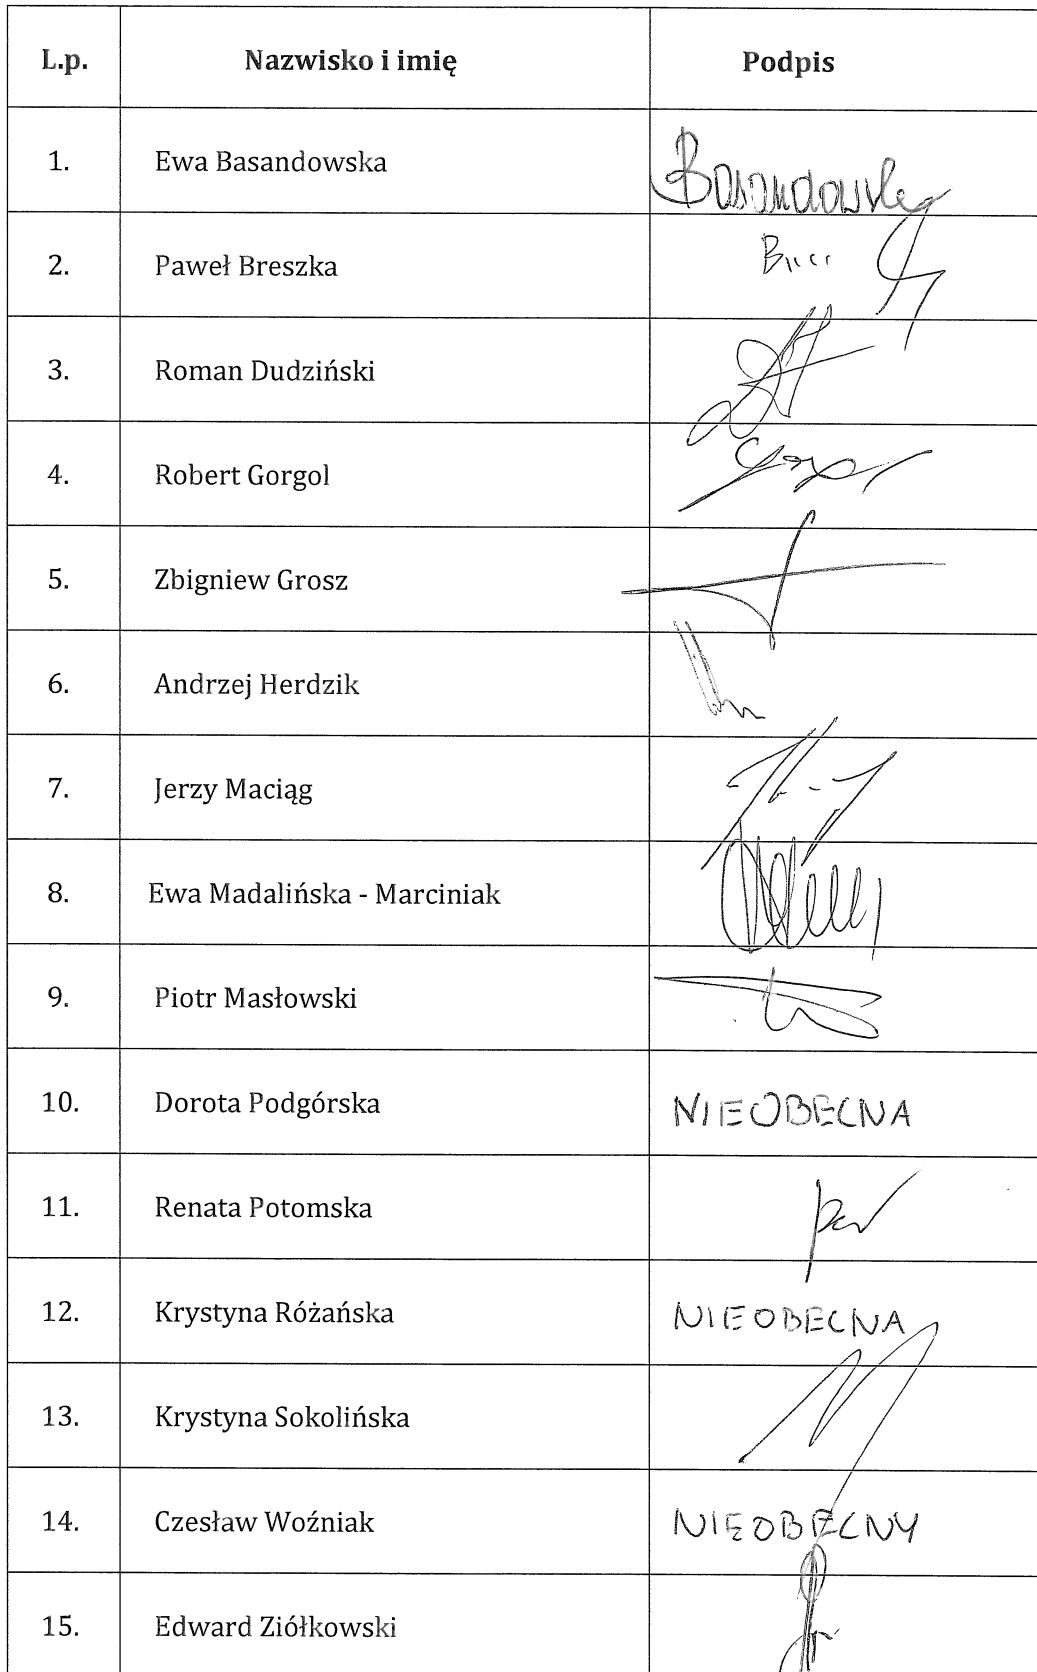 L.p. Nazwisko i imię Podpis
1. Ewa Basandowska Basandowska
2. Paweł Breszka
3. Roman Dudziński
4. Robert Gorgol
5. Zbigniew Grosz
6. Andrzej Herdzik
7. Jerzy Maciąg
8. Ewa Madalińska - Marciniak
9. Piotr Masłowski
10. Dorota Podgórska NIEOBECNA
11. Renata Potomska
12. Krystyna Różańska NIEOBECNA
13. Krystyna Sokolińska
14. Czesław Woźniak NIEOBECNY
15. Edward Ziółkowski